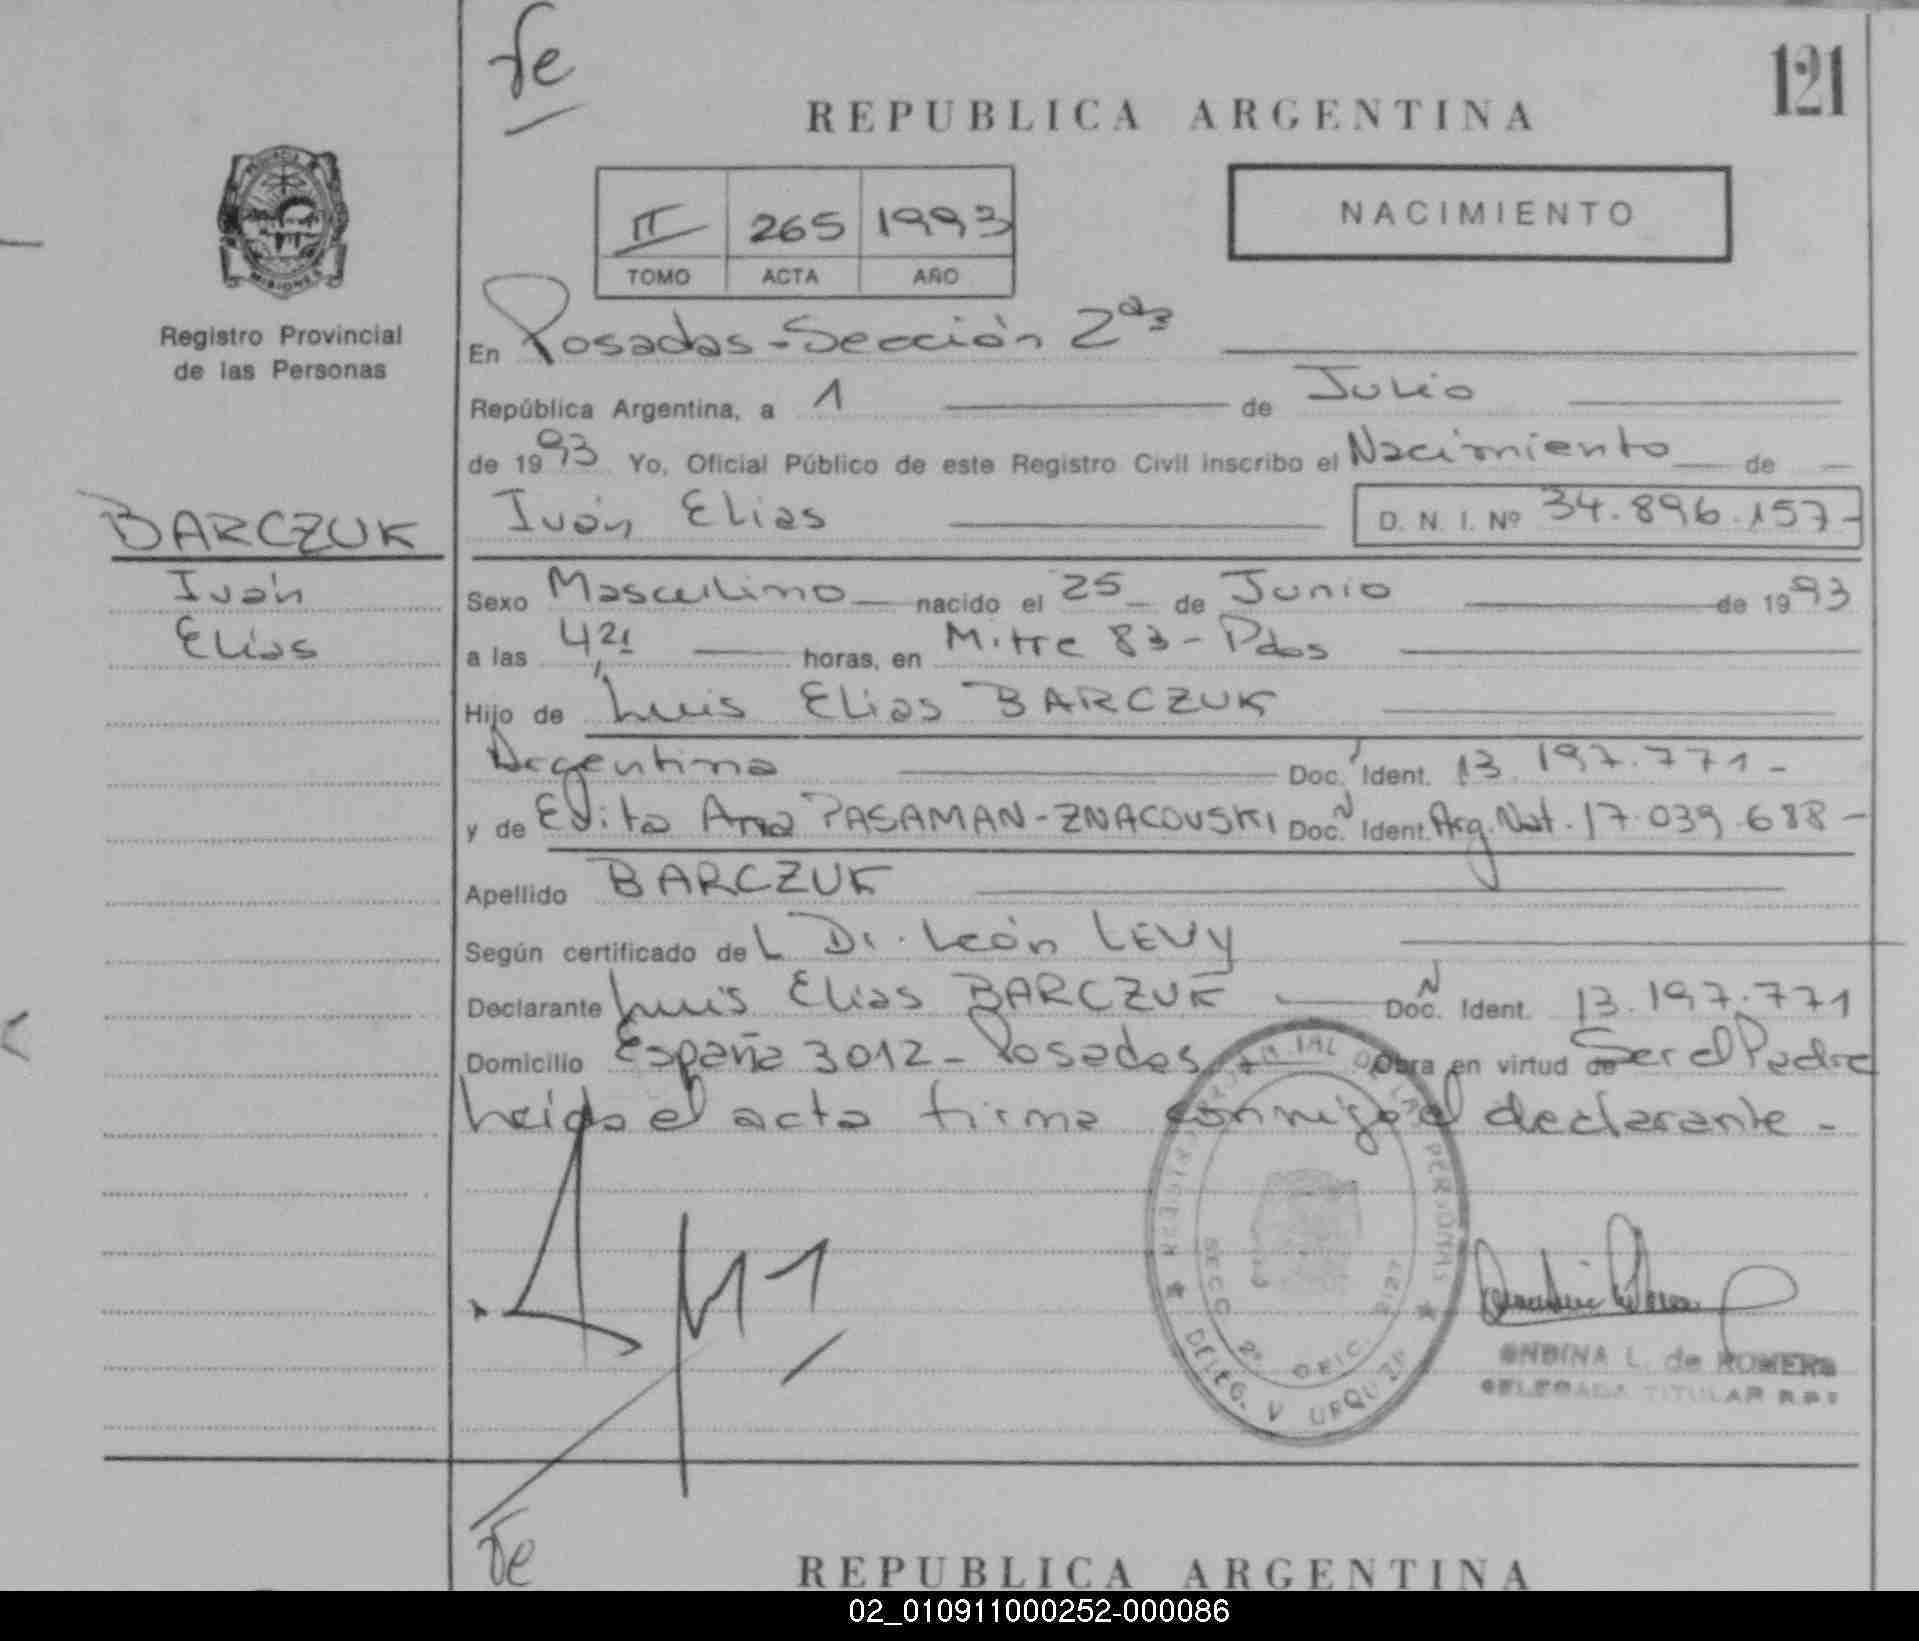 fe
121
REPUBLICA ARGENTINA
II 265 1993
TOMO ACTA AÑO
NACIMIENTO
MISIONES
Registro Provincial
de las Personas
En Posadas-Sección 2da
República Argentina, a 1 de Julio
de 1993 Yo, Oficial Público de este Registro Civil inscribo el Nacimiento de
BARCZUK
Iván
Elías
Iván Elías D. N. I. Nº 34.896.157-
Sexo Masculino nacido el 25 de Junio de 1993
a las horas, en Mitre 83 - Pdas
Hijo de Luis Elias BARCZUK
Argentina Doc. Ident. 13.197.771-
y de Edita Ana PASAMAN-ZNACOVSKI Doc. Ident. Arg. Nat. 17.039.688-
Apellido BARCZUK
Según certificado del Dr. León LEVY
Declarante Luis Elias BARCZUK Doc. Ident. 13.197.771
Domicilio España 3012 - Posadas Obra en virtud de Ser el Padre
Leída el acta firma conmigo el declarante -
REGISTRO PROVINCIAL DE LAS PERSONAS
SECC. 2ª OFIC. 2127
DELEG. V URQUIZA
L. de ROMERO
DELEGADA TITULAR R.P.P.
fe
REPUBLICA ARGENTINA
02_010911000252-000086